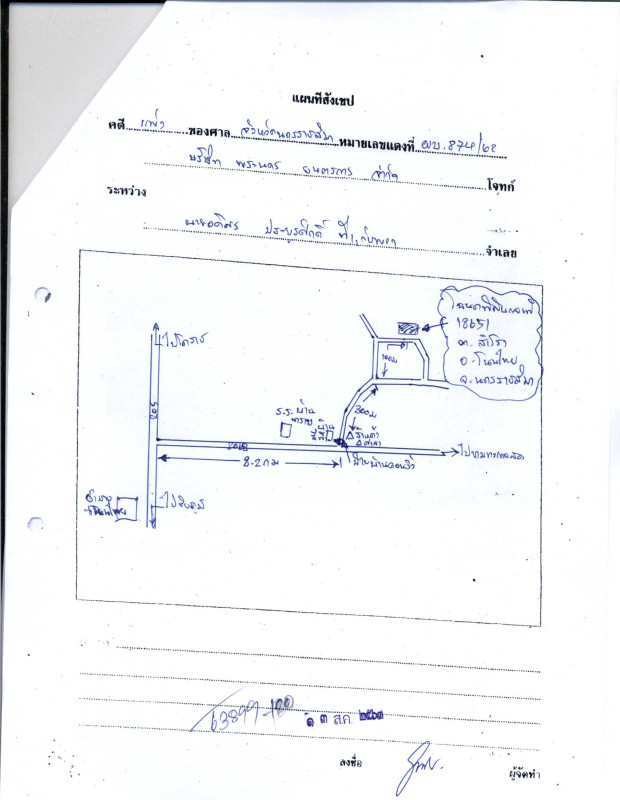 แผนที่สังเขป
คดี แพ่ง ของศาล จังหวัดนครราชสีมา หมายเลขแดงที่ ผบ.874/62
บริษัท พระนคร ยนตรการ จำกัด โจทก์
ระหว่าง
นายอดิศร ประยูรศักดิ์ ที่1, กับพวก จำเลย
โฉนดที่ดินเลขที่
18651
ต. สำโรง
อ. โนนไทย
จ. นครราชสีมา
ไปโคราช
205
100ม
300ม
ร.ร. บ้าน
บ้าน
ร้านค้า
ศาลา
2068
8.2 กม
ป้ายบ้านดอนงิ้ว
ไปสีคิ้ว
อำเภอ
โนนไทย
63899-100
๑ ๓ ส.ค. ๒๕๖๓
ลงชื่อ
ผู้จัดทำ